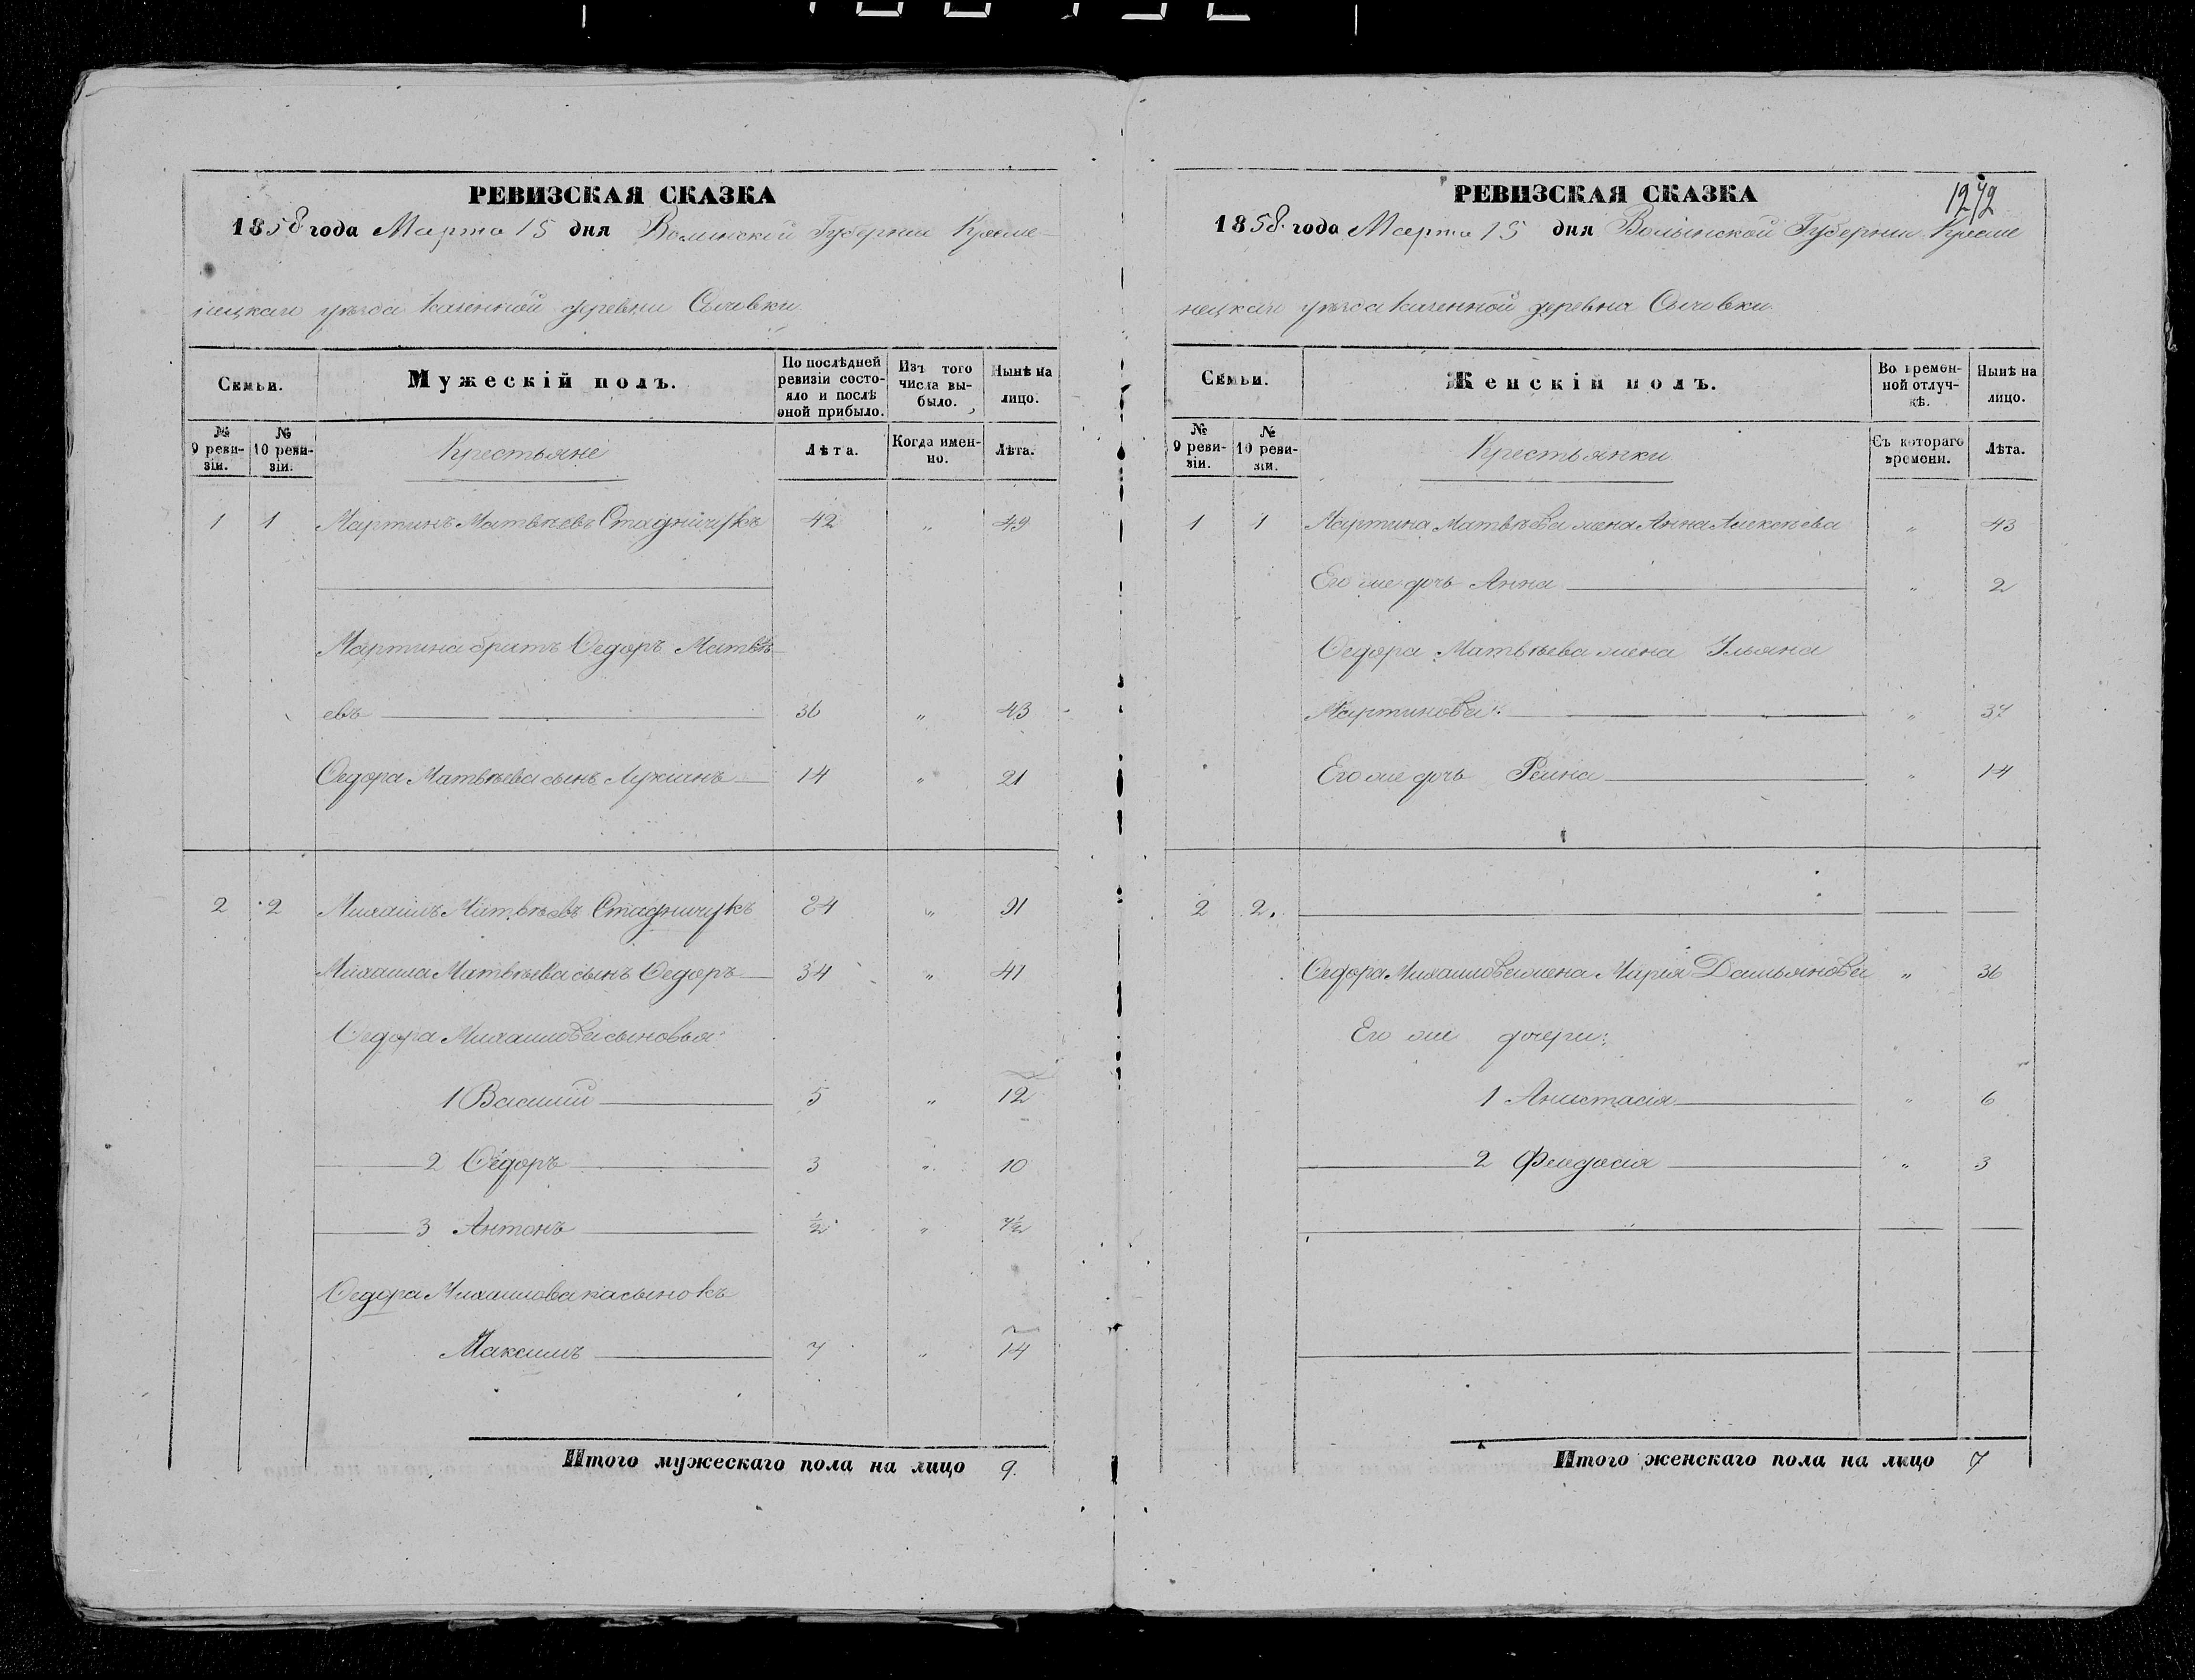 РЕВИЗСКАЯ СКАЗКА
1858 года Марта 15 дня Волынской Губернии Креме-
нецкаго уѣзда казенной деревни Сычовки
Семьи.
Мужескій полъ.
По послѣдней ревизіи состояло и послѣ оной прибыло.
Изъ того числа выбыло.
Нынѣ на лицо.
№ 9 ревизіи.
№ 10 ревизіи.
Крестьяне
Лѣта.
Когда именно.
Лѣта.
1 1 Мартинъ Матвѣевъ Стадничукъ 42 " 49
Мартина братъ Ѳедоръ Матвѣ-
евъ 36 " 43
Ѳедора Матвѣева сынъ Лукіанъ 14 " 21
2 2 Михаилъ Матвѣевъ Стадничукъ 84 " 91
Михаила Матвѣева сынъ Ѳедоръ 34 " 41
Ѳедора Михаилова сыновья:
1 Василій 5 " 12
2 Ѳедоръ 3 " 10
3 Антонъ ½ " 7½
Ѳедора Михаилова пасынокъ
Максимъ 7 " 14
Итого мужескаго пола на лицо 9.
РЕВИЗСКАЯ СКАЗКА
1272
1858 года Марта 15 дня Волынской Губернии Креме
нецкаго уѣзда казенной деревна Сычовки
Семьи.
Женскій полъ.
Во временной отлучкѣ.
Нынѣ на лицо.
№ 9 ревизіи.
№ 10 ревизіи.
Крестьянки
Съ котораго времени.
Лѣта.
1 1 Мартина Матвѣева жена Анна Алексѣева " 43
Его же дочь Анна " 2
Ѳедора Матвѣева жена Ульяна
Мартинова " 37
Его же дочь " 14
2 2.
Ѳедора Михаилова жена Марія Дамьянова " 36
Его же дочери:
1 Анастасія " 6
2 Феодосія " 3
Итого женскаго пола на лицо 7